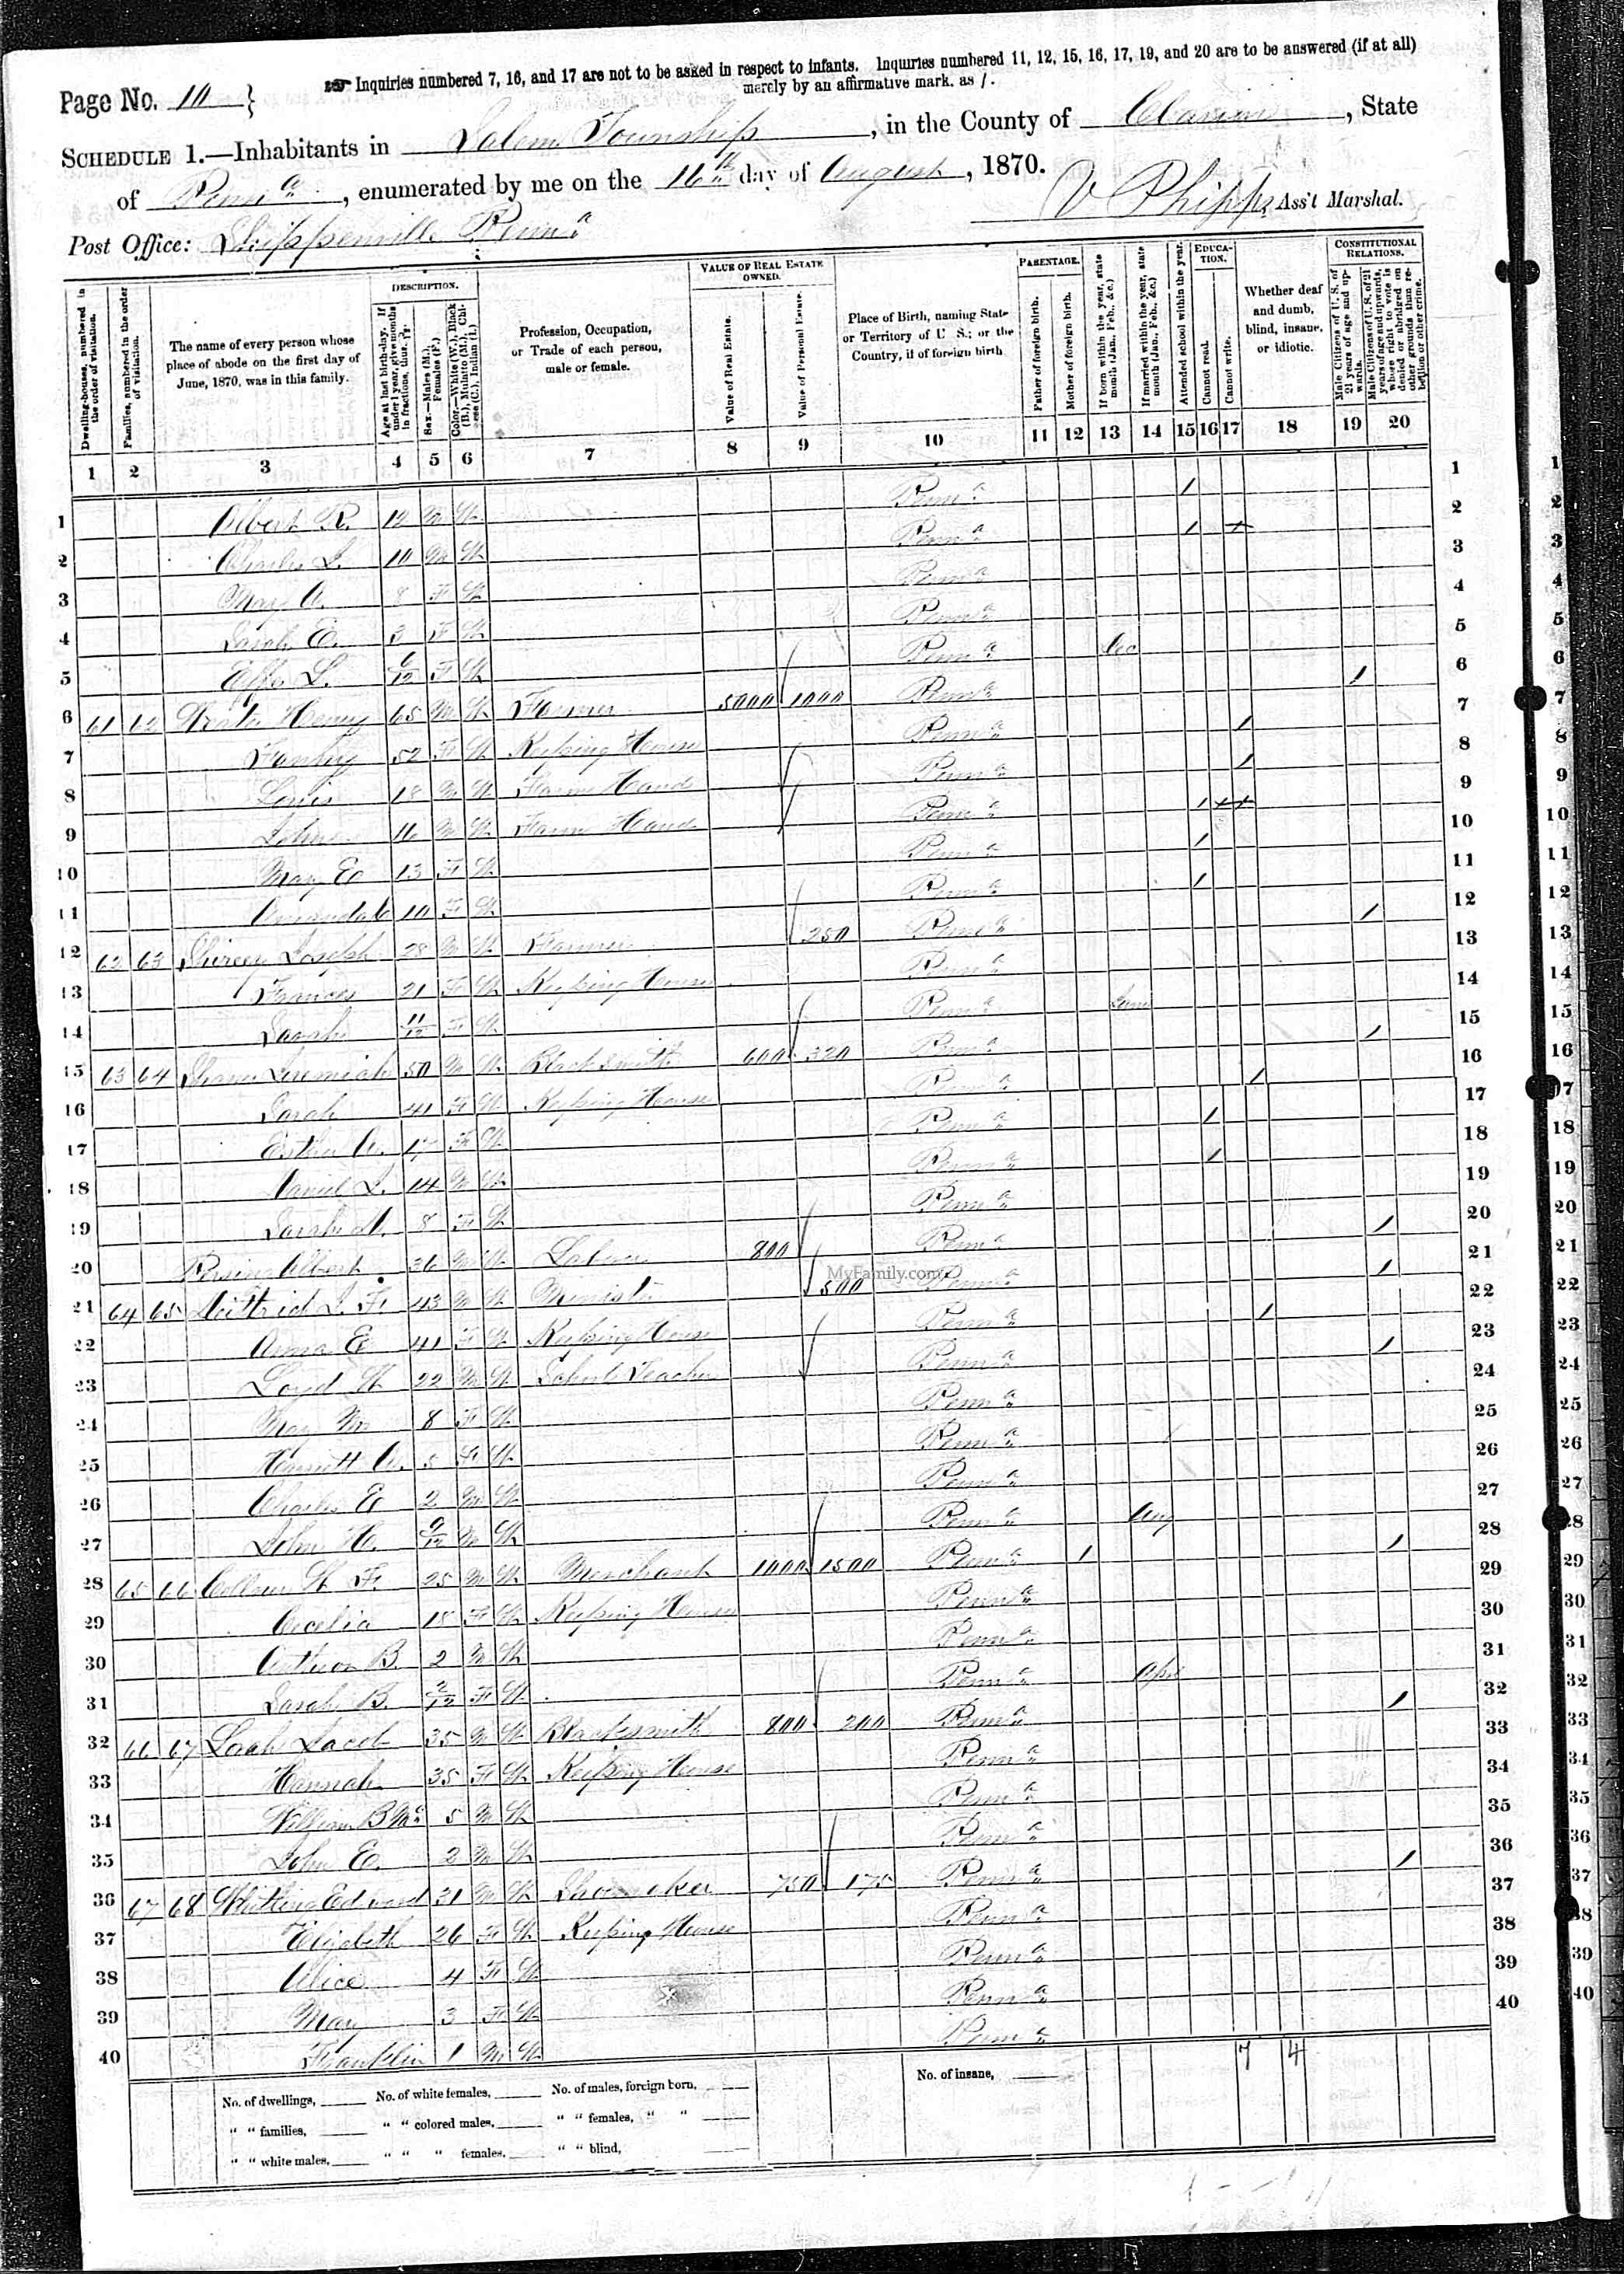 Inquiries numbered 7, 16, and 17 are not to be asked in respect to infants. Inquiries numbered 11, 12, 15, 16, 17, 19, and 20 are to be answered (if at all)
merely by an affirmative mark, as /.
Page No. 10 }
SCHEDULE 1.—Inhabitants in Salem Township, in the County of Clarion, State
of Penna, enumerated by me on the 16th day of August, 1870.
Post Office: Shippenville Penna
V Phipps, Ass't Marshal.
Dwelling-houses, numbered in the order of visitation.
Families, numbered in the order of visitation.
The name of every person whose place of abode on the first day of June, 1870, was in this family.
DESCRIPTION.
Age at last birth-day. If under 1 year, give months in fractions, thus, 3/12
Sex.—Males (M.), Females (F.)
Color.—White (W.), Black (B.), Mulatto (M.), Chinese (C.), Indian (I.)
Profession, Occupation, or Trade of each person, male or female.
VALUE OF REAL ESTATE OWNED.
Value of Real Estate.
Value of Personal Estate.
Place of Birth, naming State or Territory of U. S.; or the Country, if of foreign birth
PARENTAGE.
Father of foreign birth.
Mother of foreign birth.
If born within the year, state month (Jan., Feb., &c.)
If married within the year, state month (Jan., Feb., &c.)
Attended school within the year.
EDUCATION.
Cannot read.
Cannot write.
Whether deaf and dumb, blind, insane, or idiotic.
CONSTITUTIONAL RELATIONS.
Male Citizens of U. S. of 21 years of age and upwards.
Male Citizens of U. S. of 21 years of age and upwards, whose right to vote is denied or abridged on other grounds than rebellion or other crime.
1 2 3 4 5 6 7 8 9 10 11 12 13 14 15 16 17 18 19 20
1 Albert R. M W Penna / 1
2 Charles L. 10 M W Penna / 2
3 Mary A. 8 F W Penna 3
4 Sarah E. 3 F W Penna 4
5 Effe L. 6/12 F W Penna Dec 5
6 61 62 Henry 65 M W Farmer 5000 1000 Penna / 6
7 52 F W Keeping House Penna / 7
8 Lewis 18 M W Farm Hand Penna / 8
9 John 16 M W Farm Hand Penna / 9
10 Mary E 13 F W Penna / 10
11 Amanda C 10 F W Penna / 11
12 62 63 Shirey Joseph 28 M W Farmer 250 Penna / 12
13 Frances 21 F W Keeping House Penna 13
14 Sarah 11/12 F W Penna June 14
15 63 64 Jeremiah 50 M W Blacksmith 600 320 Penna / 15
16 Sarah 41 F W Keeping House Penna / 16
17 Esther A. 17 F W Penna / 17
18 Daniel L. 14 M W Penna / 18
19 Sarah M. 8 F W Penna 19
20 Albert 26 M W Labor 800 Penna / 20
21 64 65 F. 43 M W Minister 500 Penna / 21
22 Anna E 41 F W Keeping House Penna / 22
23 Loyd W 22 M W School Teacher Penna / 23
24 Mary M 8 F W Penna 24
25 Harriett A. 5 F W Penna 25
26 Charles E 2 M W Penna 26
27 John H. 9/12 M W Penna Aug 27
28 65 66 W. F. 25 M W Merchant 1000 1500 Penna / / 28
29 Cecelia 18 F W Keeping House Penna 29
30 B. 2 M W Penna 30
31 Sarah B. 2/12 F W Penna Apr 31
32 66 67 Jacob 35 M W Blacksmith 800 200 Penna / 32
33 Hannah 35 F W Keeping House Penna 33
34 William B Mc 5 M W Penna 34
35 John E. 2 M W Penna 35
36 67 68 Whitling Edward 31 M W Shoemaker 750 175 Penna / 36
37 Elizabeth 26 F W Keeping House Penna 37
38 Alice 4 F W Penna 38
39 Mary 3 F W Penna 39
40 Franklin 1 M W Penna 40
7 4
No. of dwellings, No. of white females, No. of males, foreign born, No. of insane,
" " families, " " colored males, " " females, " "
" " white males, " " " females, " " blind,
MyFamily.com